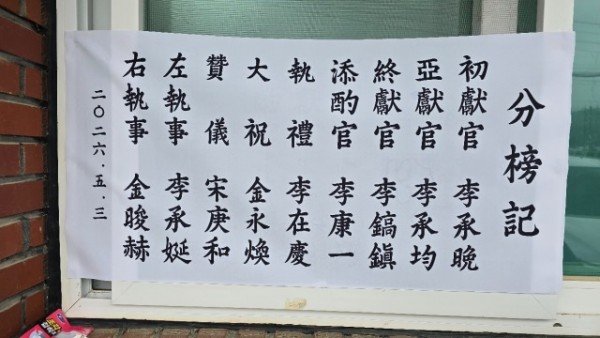 分榜記
初獻官 李承晩
亞獻官 李承均
終獻官 李鎬鎭
添酌官 李康一
執禮 李在慶
大祝 金永煥
贊儀 宋庚和
左執事 李承娫
右執事 金晙赫
二〇二六.五.三